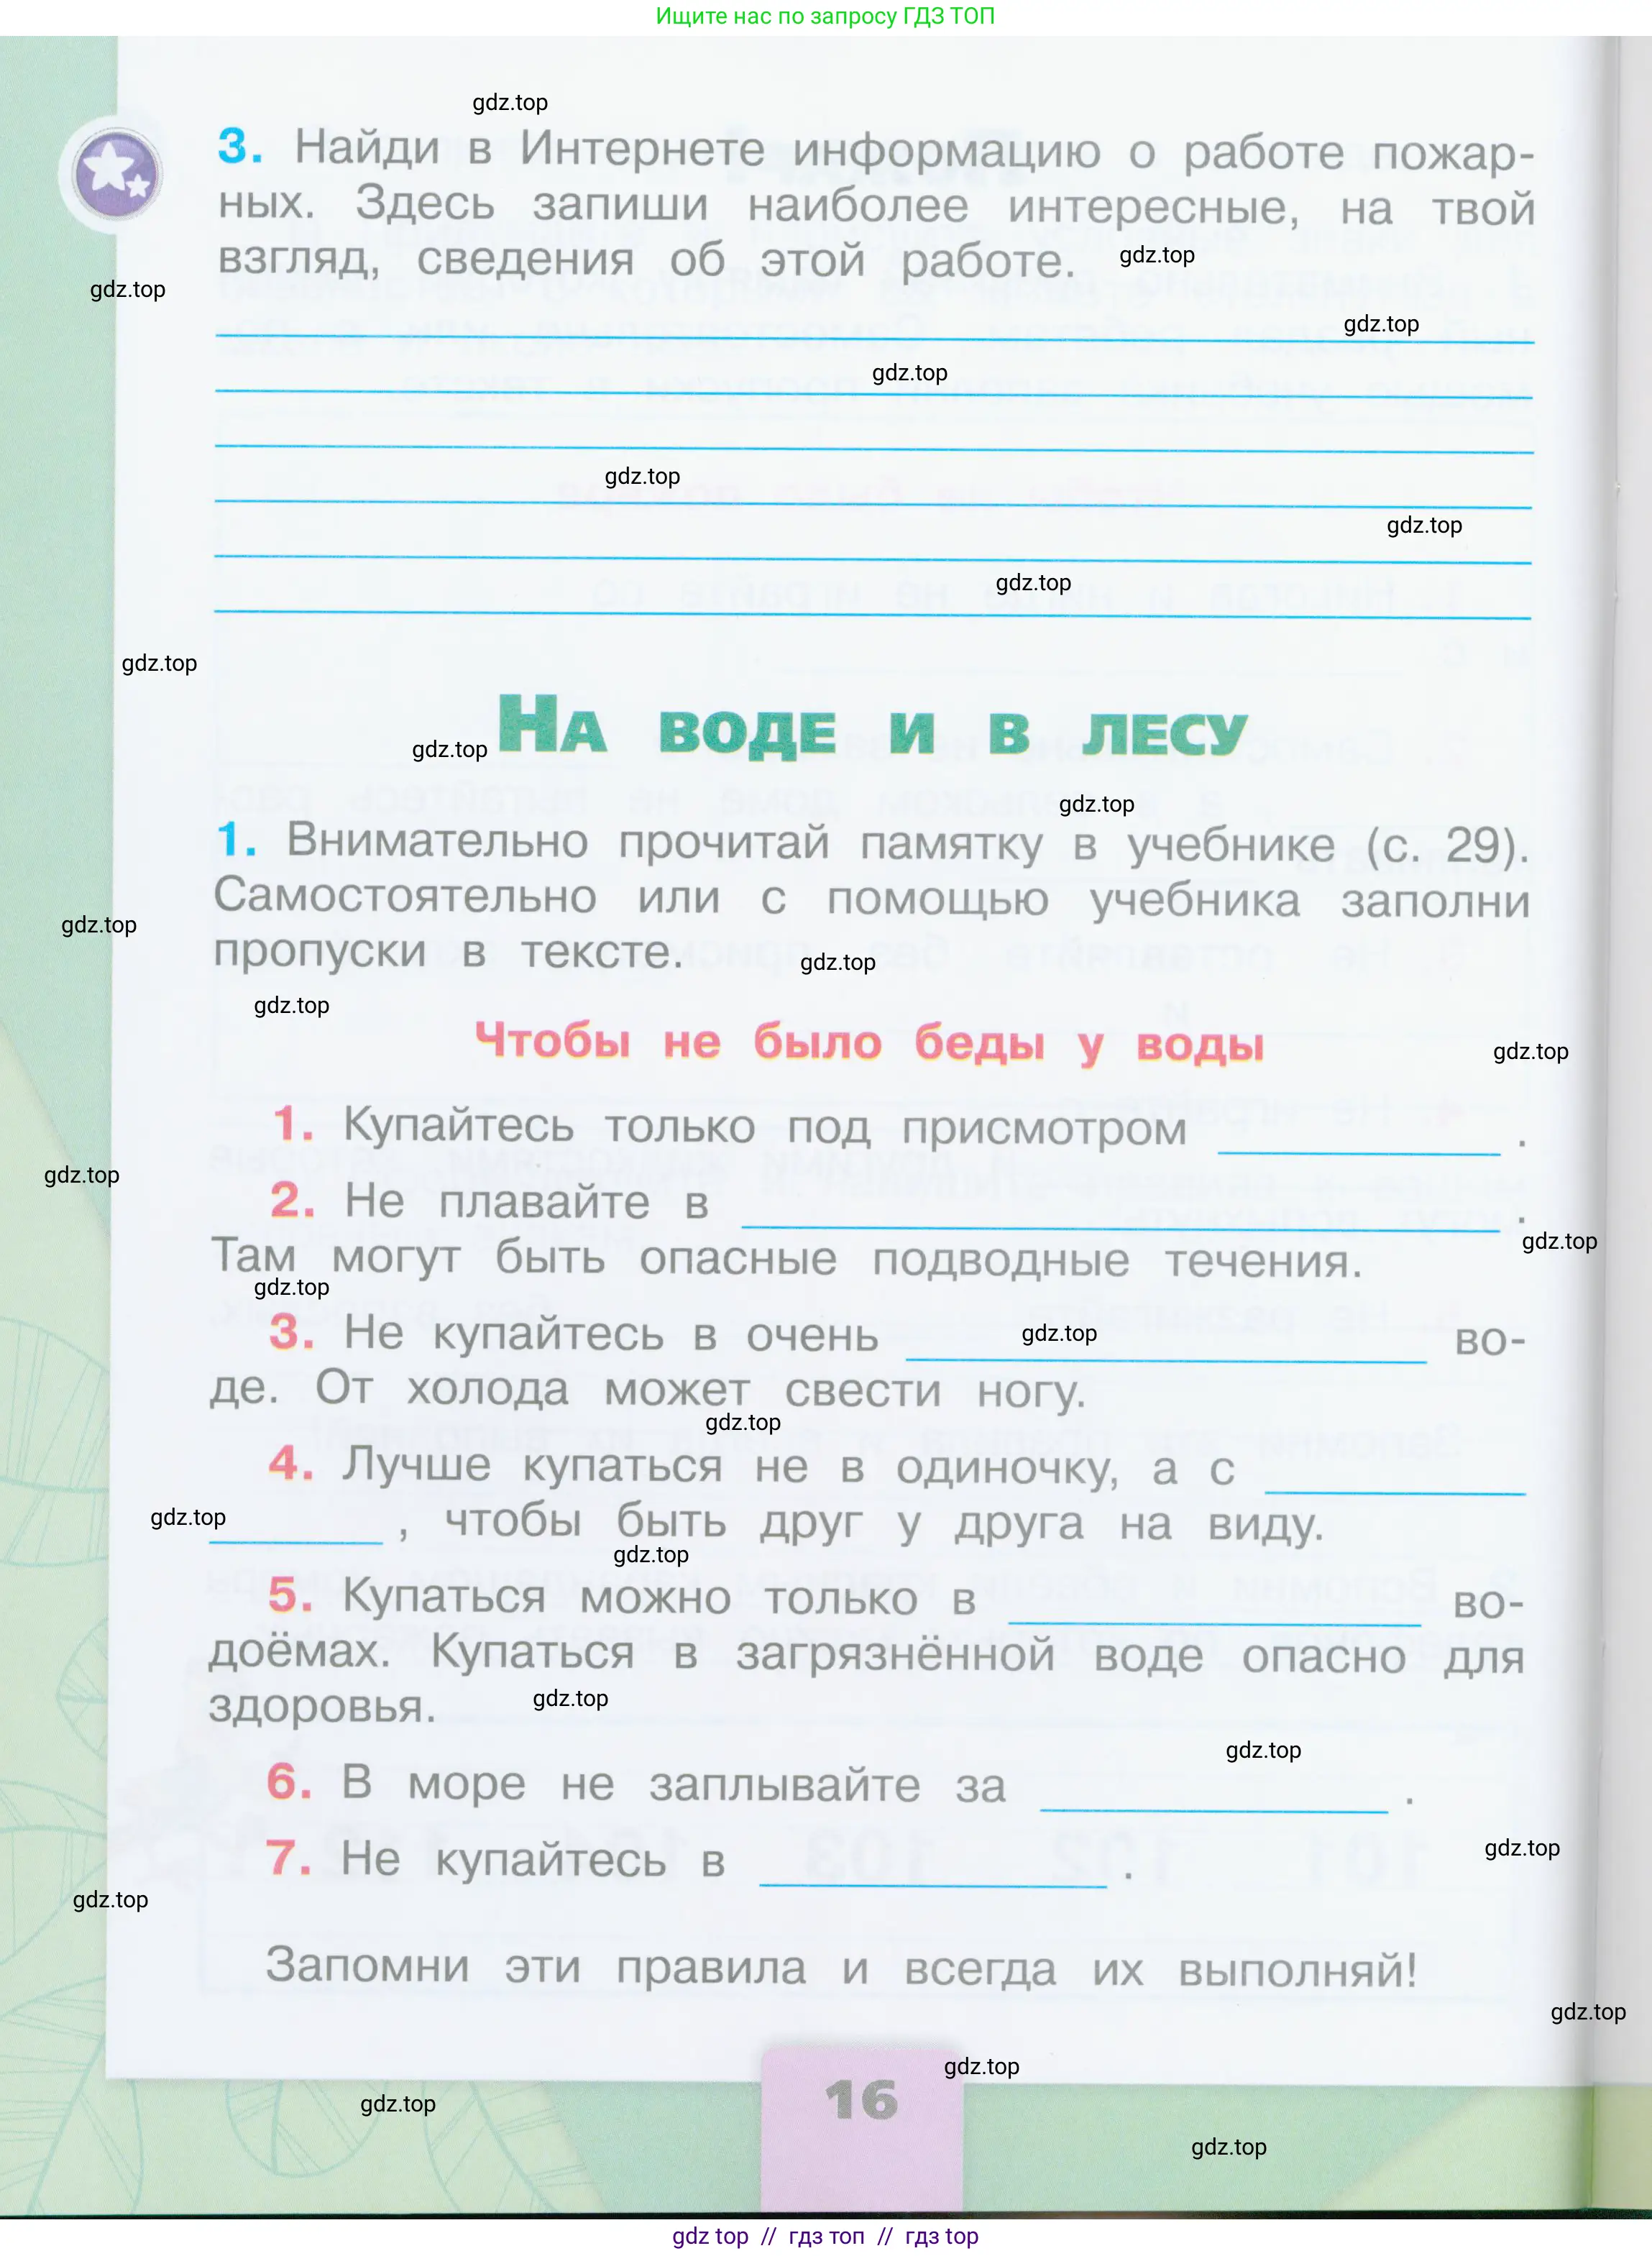 Ищите нас по запросу ГДЗ ТОП
gdz.top
3. Найди в Интернете информацию о работе пожар-
ных. Здесь запиши наиболее интересные, на твой
взгляд, сведения об этой работе. gdz.top
gdz.top
gdz.top
gdz.top
gdz.top
gdz.top
gdz.top
gdz.top
На воде и в лесу
gdz.top
gdz.top
1. Внимательно прочитай памятку в учебнике (с. 29).
Самостоятельно или с помощью учебника заполни
gdz.top
пропуски в тексте. gdz.top
gdz.top
Чтобы не было беды у воды
gdz.top
1. Купайтесь только под присмотром .
gdz.top
2. Не плавайте в .
gdz.top
Там могут быть опасные подводные течения.
gdz.top
3. Не купайтесь в очень gdz.top во-
де. От холода может свести ногу.
gdz.top
4. Лучше купаться не в одиночку, а с
gdz.top , чтобы быть друг у друга на виду.
gdz.top
5. Купаться можно только в во-
доёмах. Купаться в загрязнённой воде опасно для
здоровья. gdz.top
gdz.top
6. В море не заплывайте за .
gdz.top
7. Не купайтесь в .
gdz.top
Запомни эти правила и всегда их выполняй!
gdz.top
gdz.top
16
gdz.top
gdz.top
gdz top // гдз топ // гдз top